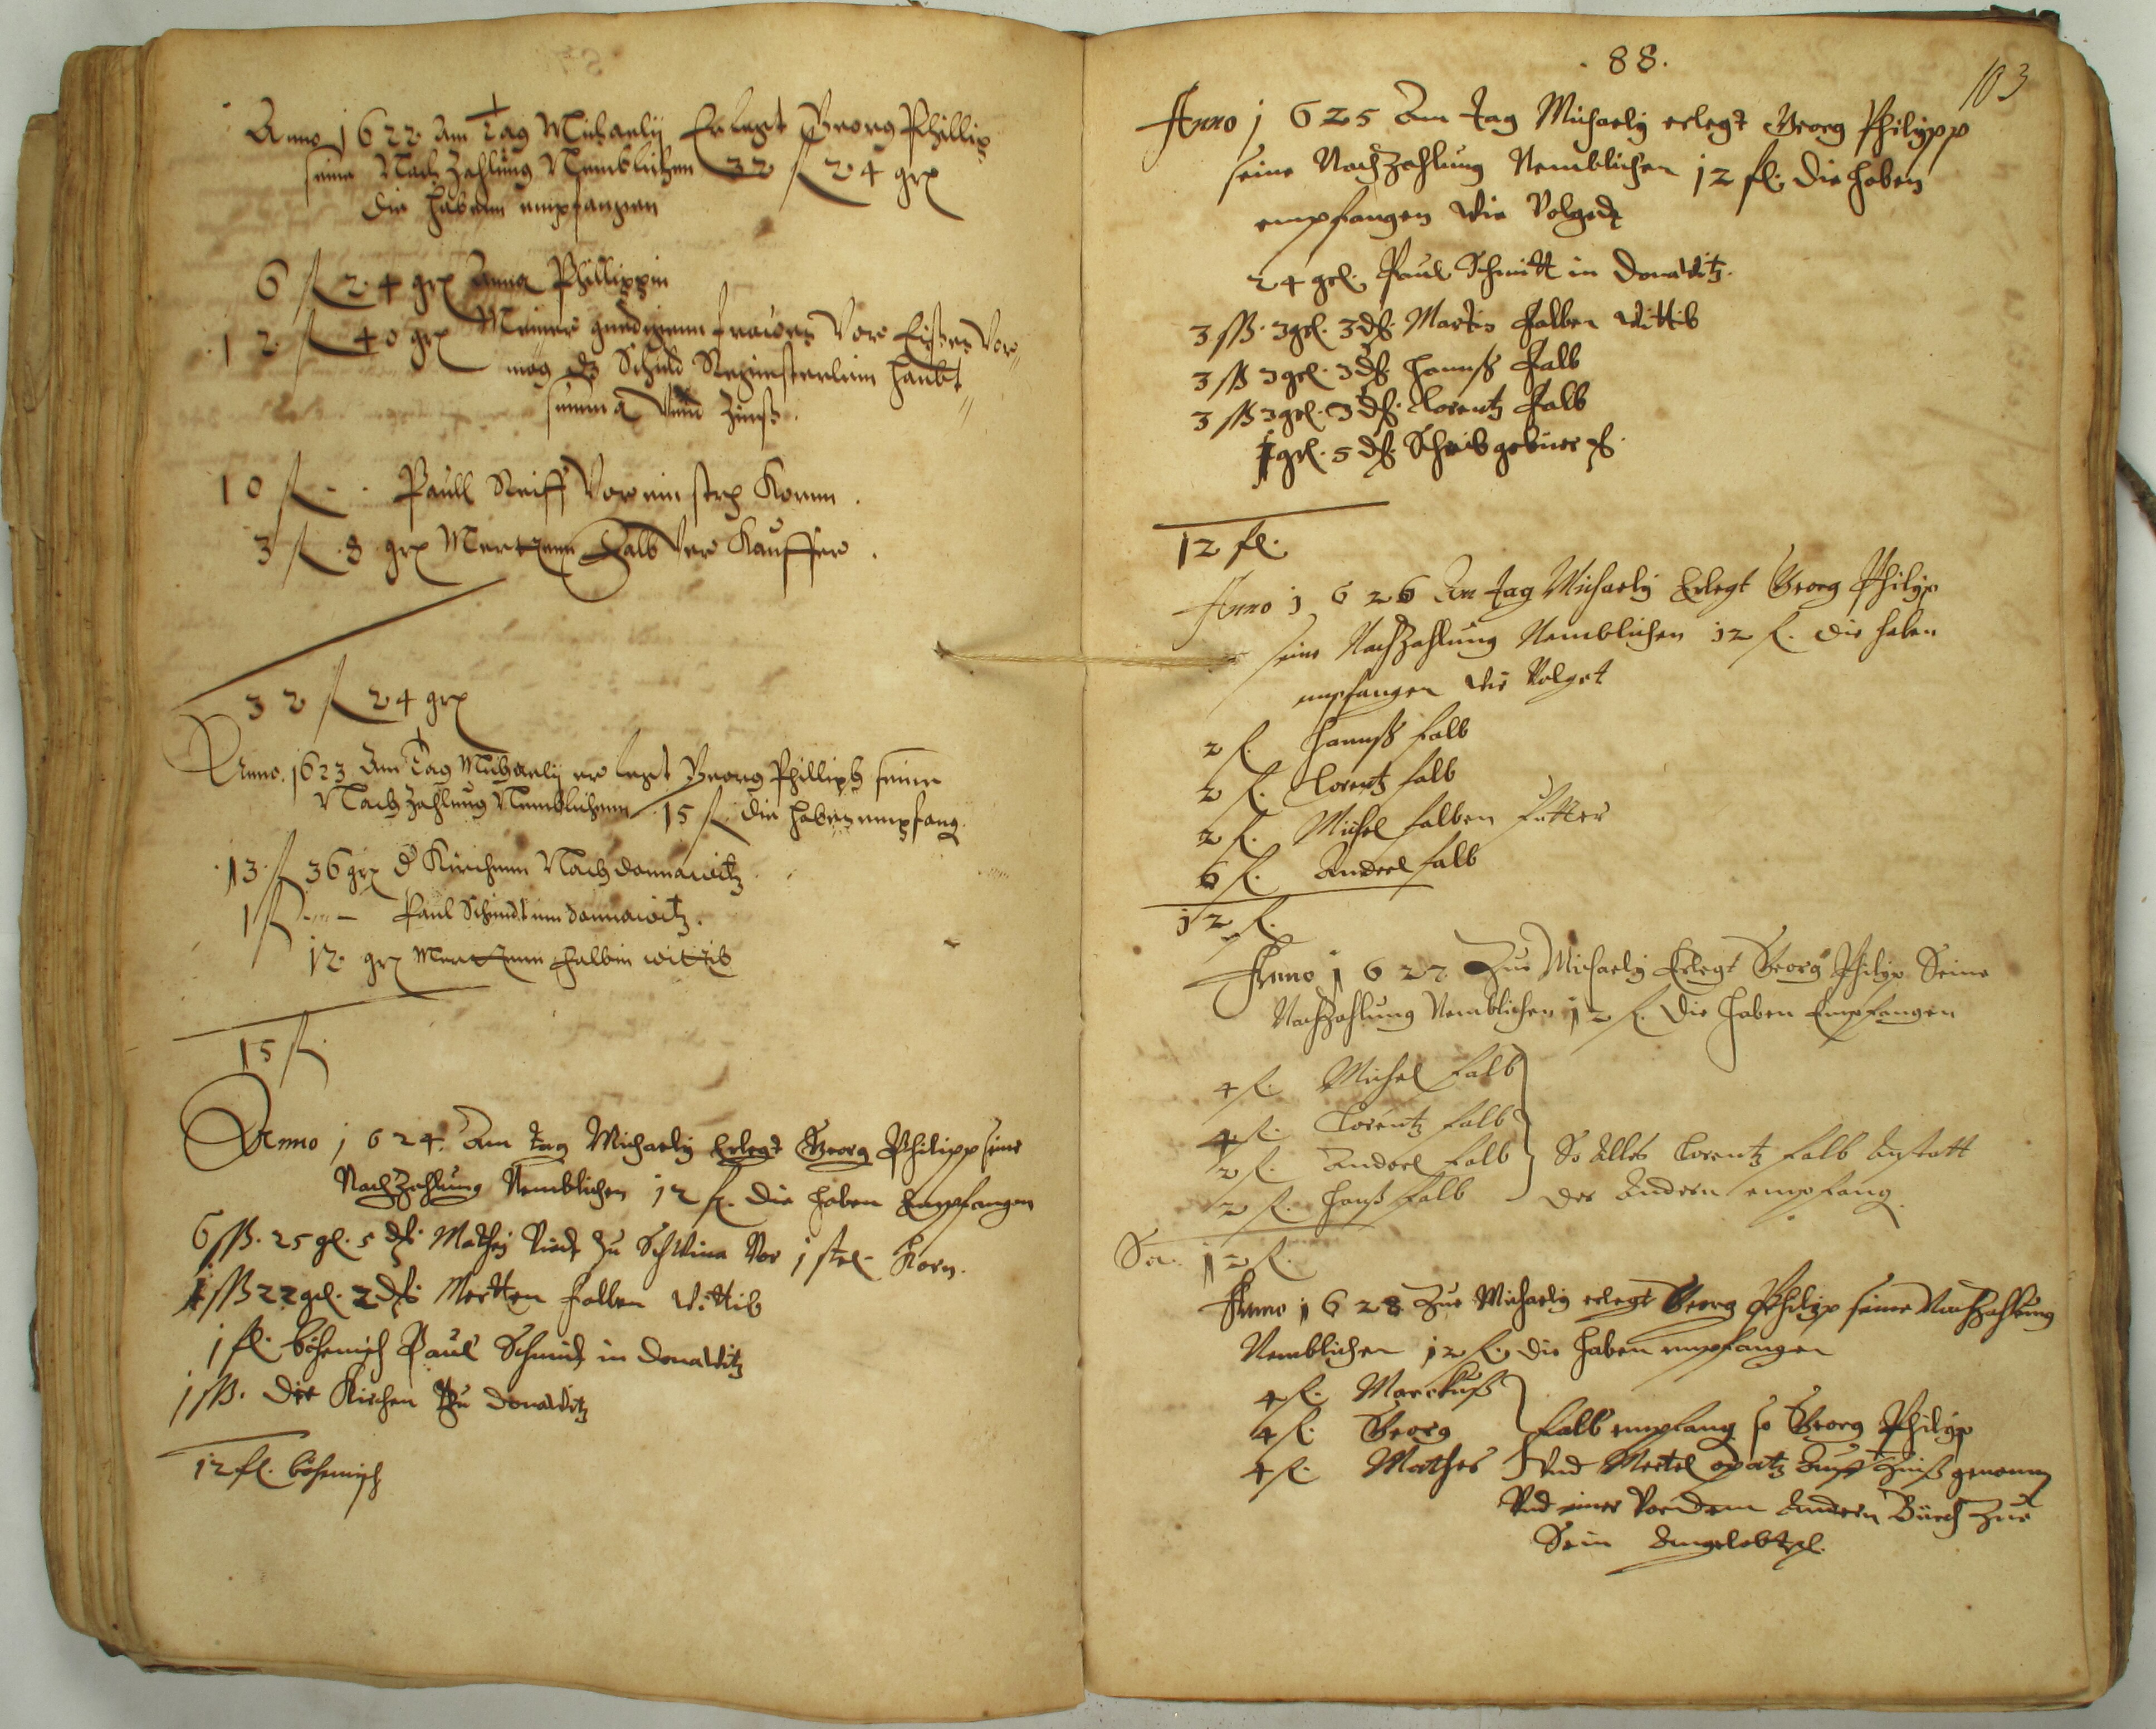 Anno 1622 Am Tag Michaely Erlegt Georg Phillip
seine Nach Zahlung Nemblichen 32 fl 24 grs
die habenn empfangen
6 fl 24 grs Anna Phillippin
12 fl 40 grs Meiner gnedigenn frawen Vor
mög Schuld Registerlein haubt
summa Vnd Zinß.
10 fl - - Paull Reiff Vor ein str Kornn.
3 fl 8 grs Mertzenn Falb Ver Kauffer.
32 fl 24 grs
Anno. 1623 Am Tag Michaely er legt Georg Phillips seine
Nach Zahlung Nemblichenn 15 fl die haben empfang.
13 fl 36 grs d Kirchenn Nach donnawitz
1 fl - - Paul Schmidt inn donnawitz.
12 grs Mertzenn Falbin wittib
15 fl.
Anno 1624. Am tag Michaely Erlegt Georg Philipp seine
NachZahlung Nemblichen 12 fl. die haben Empfangen
6 ſß. 25 gl. 5 dℓ. Mathes zu Schwina Vor 1 str. Korn.
1 ſß 22 gl. 2 dℓ Merten Falben Wittib
1 fl. böhmisch Paul Schmidt in donawitz
1 ſß. der Kirchen Zu donawitz
12 fl. böhmisch
88.
103
Anno 1625 Am tag Michaely erlegt Georg Philipp
seine NachZahlung Nemblichen 12 fl. die haben
empfangen wie Volgedt
24 gl. Paul Schmitt in donawitz.
3 ſß. 3 gl. 3 dℓ. Martin Falben Wittib
3 ſß 3 gl. 3 dℓ. Hannß Falb
3 ſß 3 gl. 3 dℓ. Lorentz Falb
1 gl. 5 dℓ. Schreib gebüer
12 fl.
Anno 1626 Am tag Michaely Erlegt Georg Philip
seine NachZahlung Nemblichen 12 fl. die haben
empfangen wie Volget
2 fl. Hannß Falb
2 fl. Lorentz Falb
2 fl. Michel Falben
6 fl. Andeel Falb
12 fl.
Anno 1627 Zue Michaely Erlegt Georg Philip Seine
NachZahlung Nemblichen 12 fl. die haben Empfangen
4 fl. Michel Falb
4 fl. Lorentz Falb
2 fl. Andeel Falb So Alles Lorentz Falb Anstatt
2 fl. Hanß Falb der Andern empfang.
Sa. 12 fl.
Anno 1628 Zue Michaely erlegt Georg Philip seine NachZahlung
Nemblichen 12 fl. die haben empfangen
4 fl. Marckuß
4 fl. Georg Falb empfang so Georg Philip
4 fl. Mathes Vnd Mertel opatz auff Zinß genomen
Vnd einer Vor dem Andern Bürch Zue
Sein Angelobt